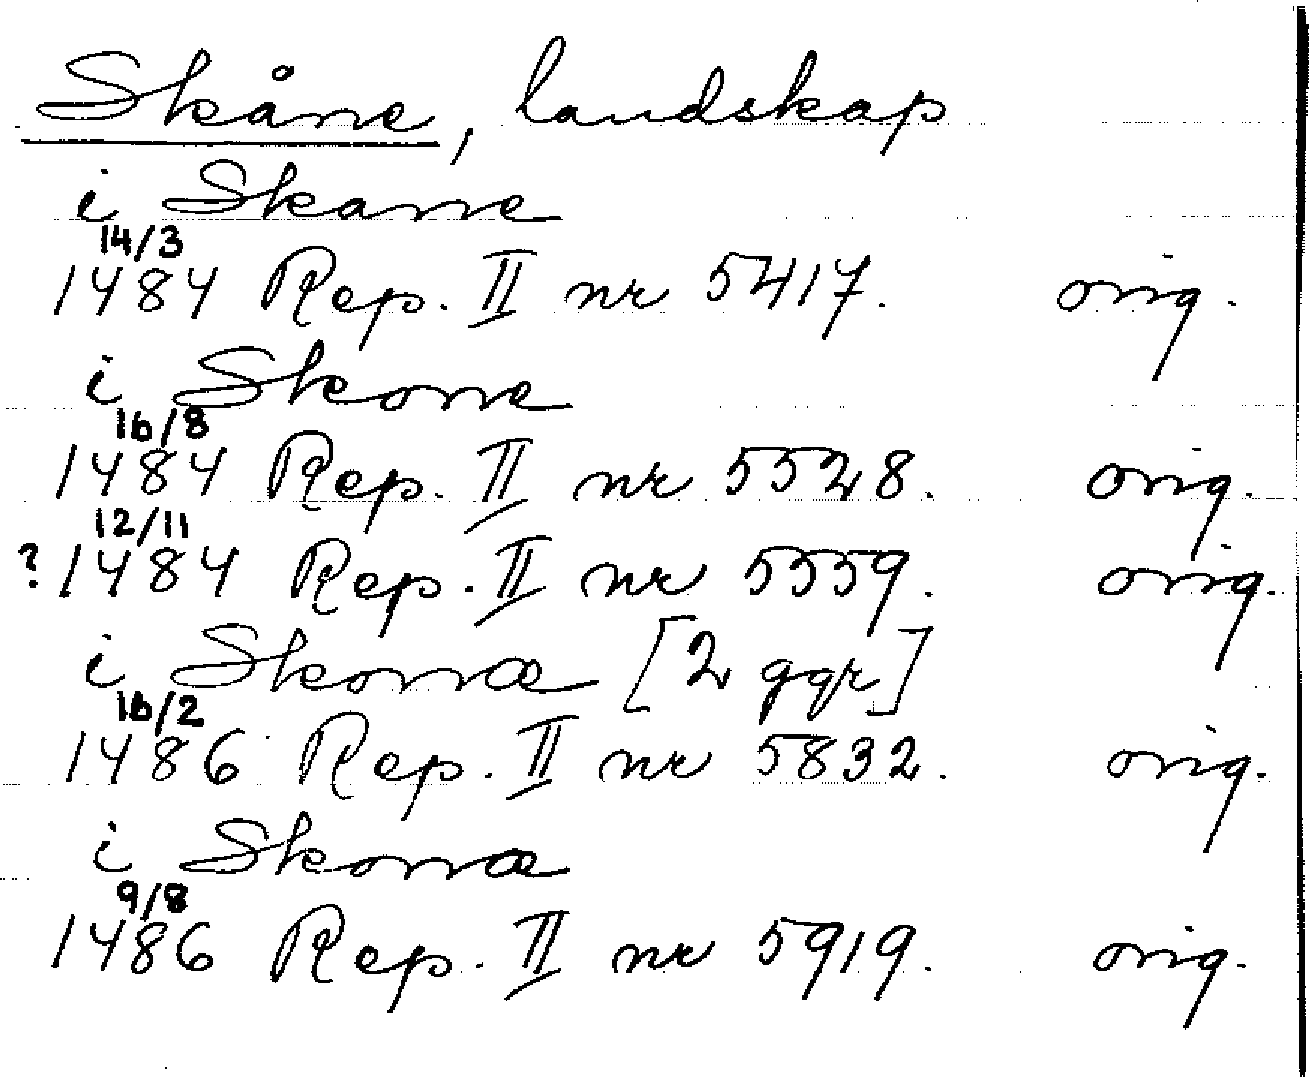 Skåne, landskap
i Skane
14/3
1484 Rep. II nr 5417. orig.
i Skone
16/8
1484 Rep. II nr 5528. orig.
12/11
? 1484 Rep. II nr 5559. orig.
i Skonæ [2 ggr]
16/2
1486 Rep. II nr 5832. orig.
i Skonæ
9/8
1486 Rep. II nr 5919. orig.